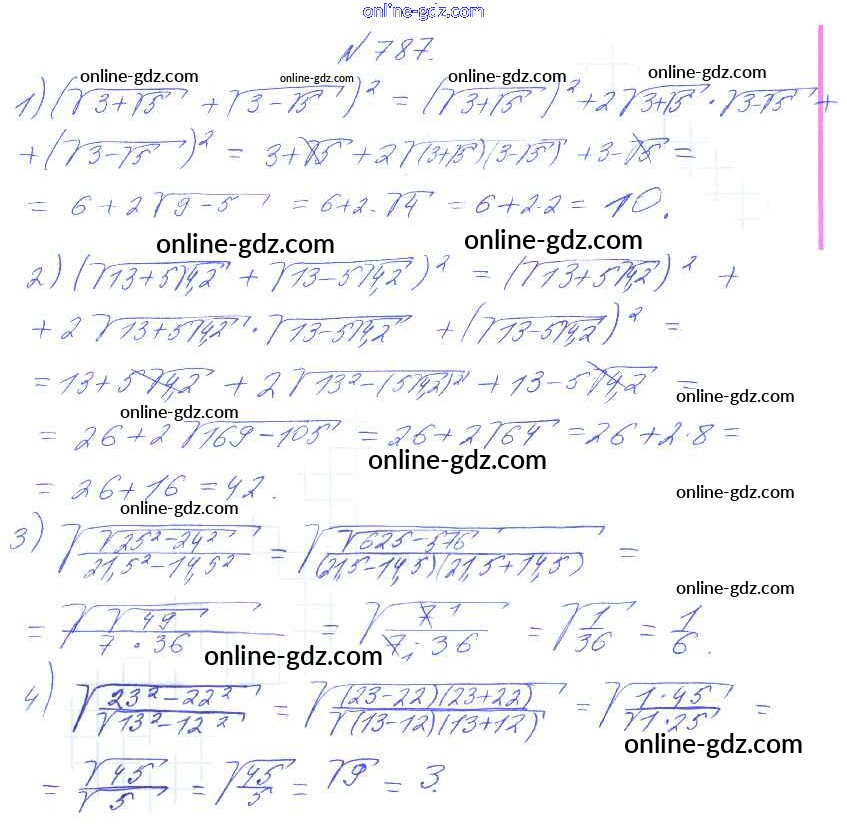 online-gdz.com
N 787.
online-gdz.com online-gdz.com online-gdz.com online-gdz.com
1) (√(3+√5) + √(3-√5))² = (√(3+√5))² + 2√(3+√5) · √(3-√5) +
+ (√(3-√5))² = 3+√5 + 2√((3+√5)(3-√5)) + 3-√5 =
= 6 + 2√(9-5) = 6+2·√4 = 6+2·2 = 10.
online-gdz.com online-gdz.com
2) (√(13+5√4,2) + √(13-5√4,2))² = (√(13+5√4,2))² +
+ 2√(13+5√4,2) · √(13-5√4,2) + (√(13-5√4,2))² =
= 13+5√4,2 + 2√(13²-(5√4,2)²) + 13-5√4,2 =
online-gdz.com online-gdz.com
= 26+2√(169-105) = 26+2√64 = 26+2·8 =
online-gdz.com
= 26+16 = 42.
online-gdz.com online-gdz.com
3) √(√(25²-24²)/(21,5²-14,5²)) = √(√(625-576)/((21,5-14,5)(21,5+14,5))) =
online-gdz.com
= √(√49/(7·36)) = √(7 1/(7 1·36)) = √(1/36) = 1/6.
online-gdz.com
4) √(23²-22²)/√(13²-12²) = √((23-22)(23+22))/√((13-12)(13+12)) = √(1·45)/√(1·25) =
online-gdz.com
= √45/√5 = √(45/5) = √9 = 3.